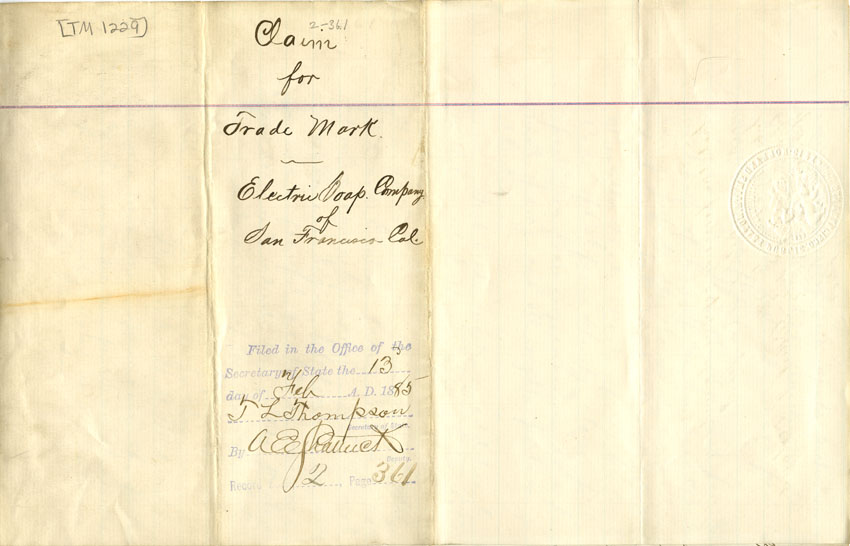 [TM 1229]
2-361
Claim
for
Trade Mark.
Electric Soap. Company
of
San Francisco Cal.
Filed in the Office of the
Secretary of State the 13
day of Feb A. D. 1885
T L Thompson
Secretary of State.
By A E
Deputy.
Record 2 Page 361